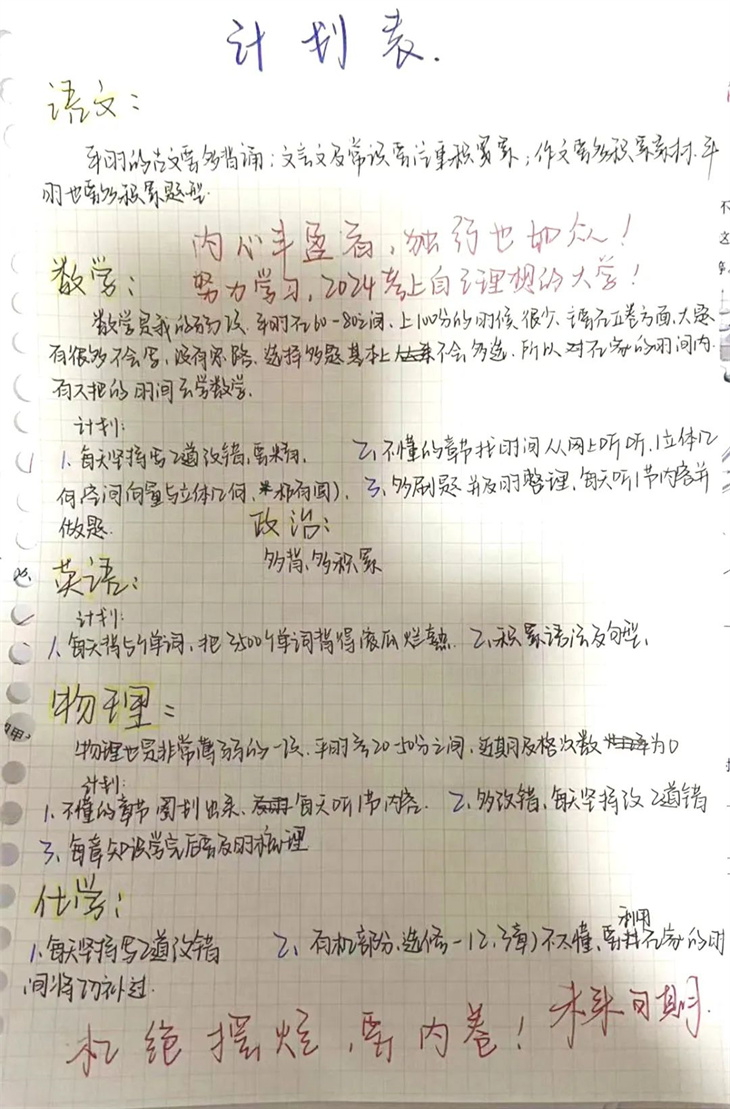 计划表.
语文:
平时的古文要多背诵;文言文及常识要注重积累;作文要多积累素材.平
时也要多积累题型.
内心丰盈者,独行也如众!
数学:
努力学习,2024考上自己理想的大学!
数学是我的弱项.平时在60-80之间,上100分的时候很少.主要在立卷方面,大题
有很多不会写,没有思路.选择多题基本上不会多选.所以对在家的时间内.
有大把的时间去学数学.
计划:
1、每天坚持写2道改错,要 2、不懂的章节找时间从网上听听.(立体几
何,空间向量与立体几何、和圆). 3、多刷题并及时整理,每天听1节内容并
做题.
政治:
多背、多积累
英语:
计划:
1、每天背5个单词,把3500个单词背得滚瓜烂熟. 2、积累语法及句型.
物理:
物理也是非常薄弱的一项.平时考20-50分之间,近期及格次数为0
计划:
1、不懂的章节圈划出来,每天听1节内容. 2、多改错,每天坚持改2道错
3、每章知识学完后要及时梳理
化学:
1、每天坚持写2道改错 2、有机部分,选修一(2、3章)不太懂,要利用在家的时
间将功补过.
杜绝摆烂,要内卷!未来可期.